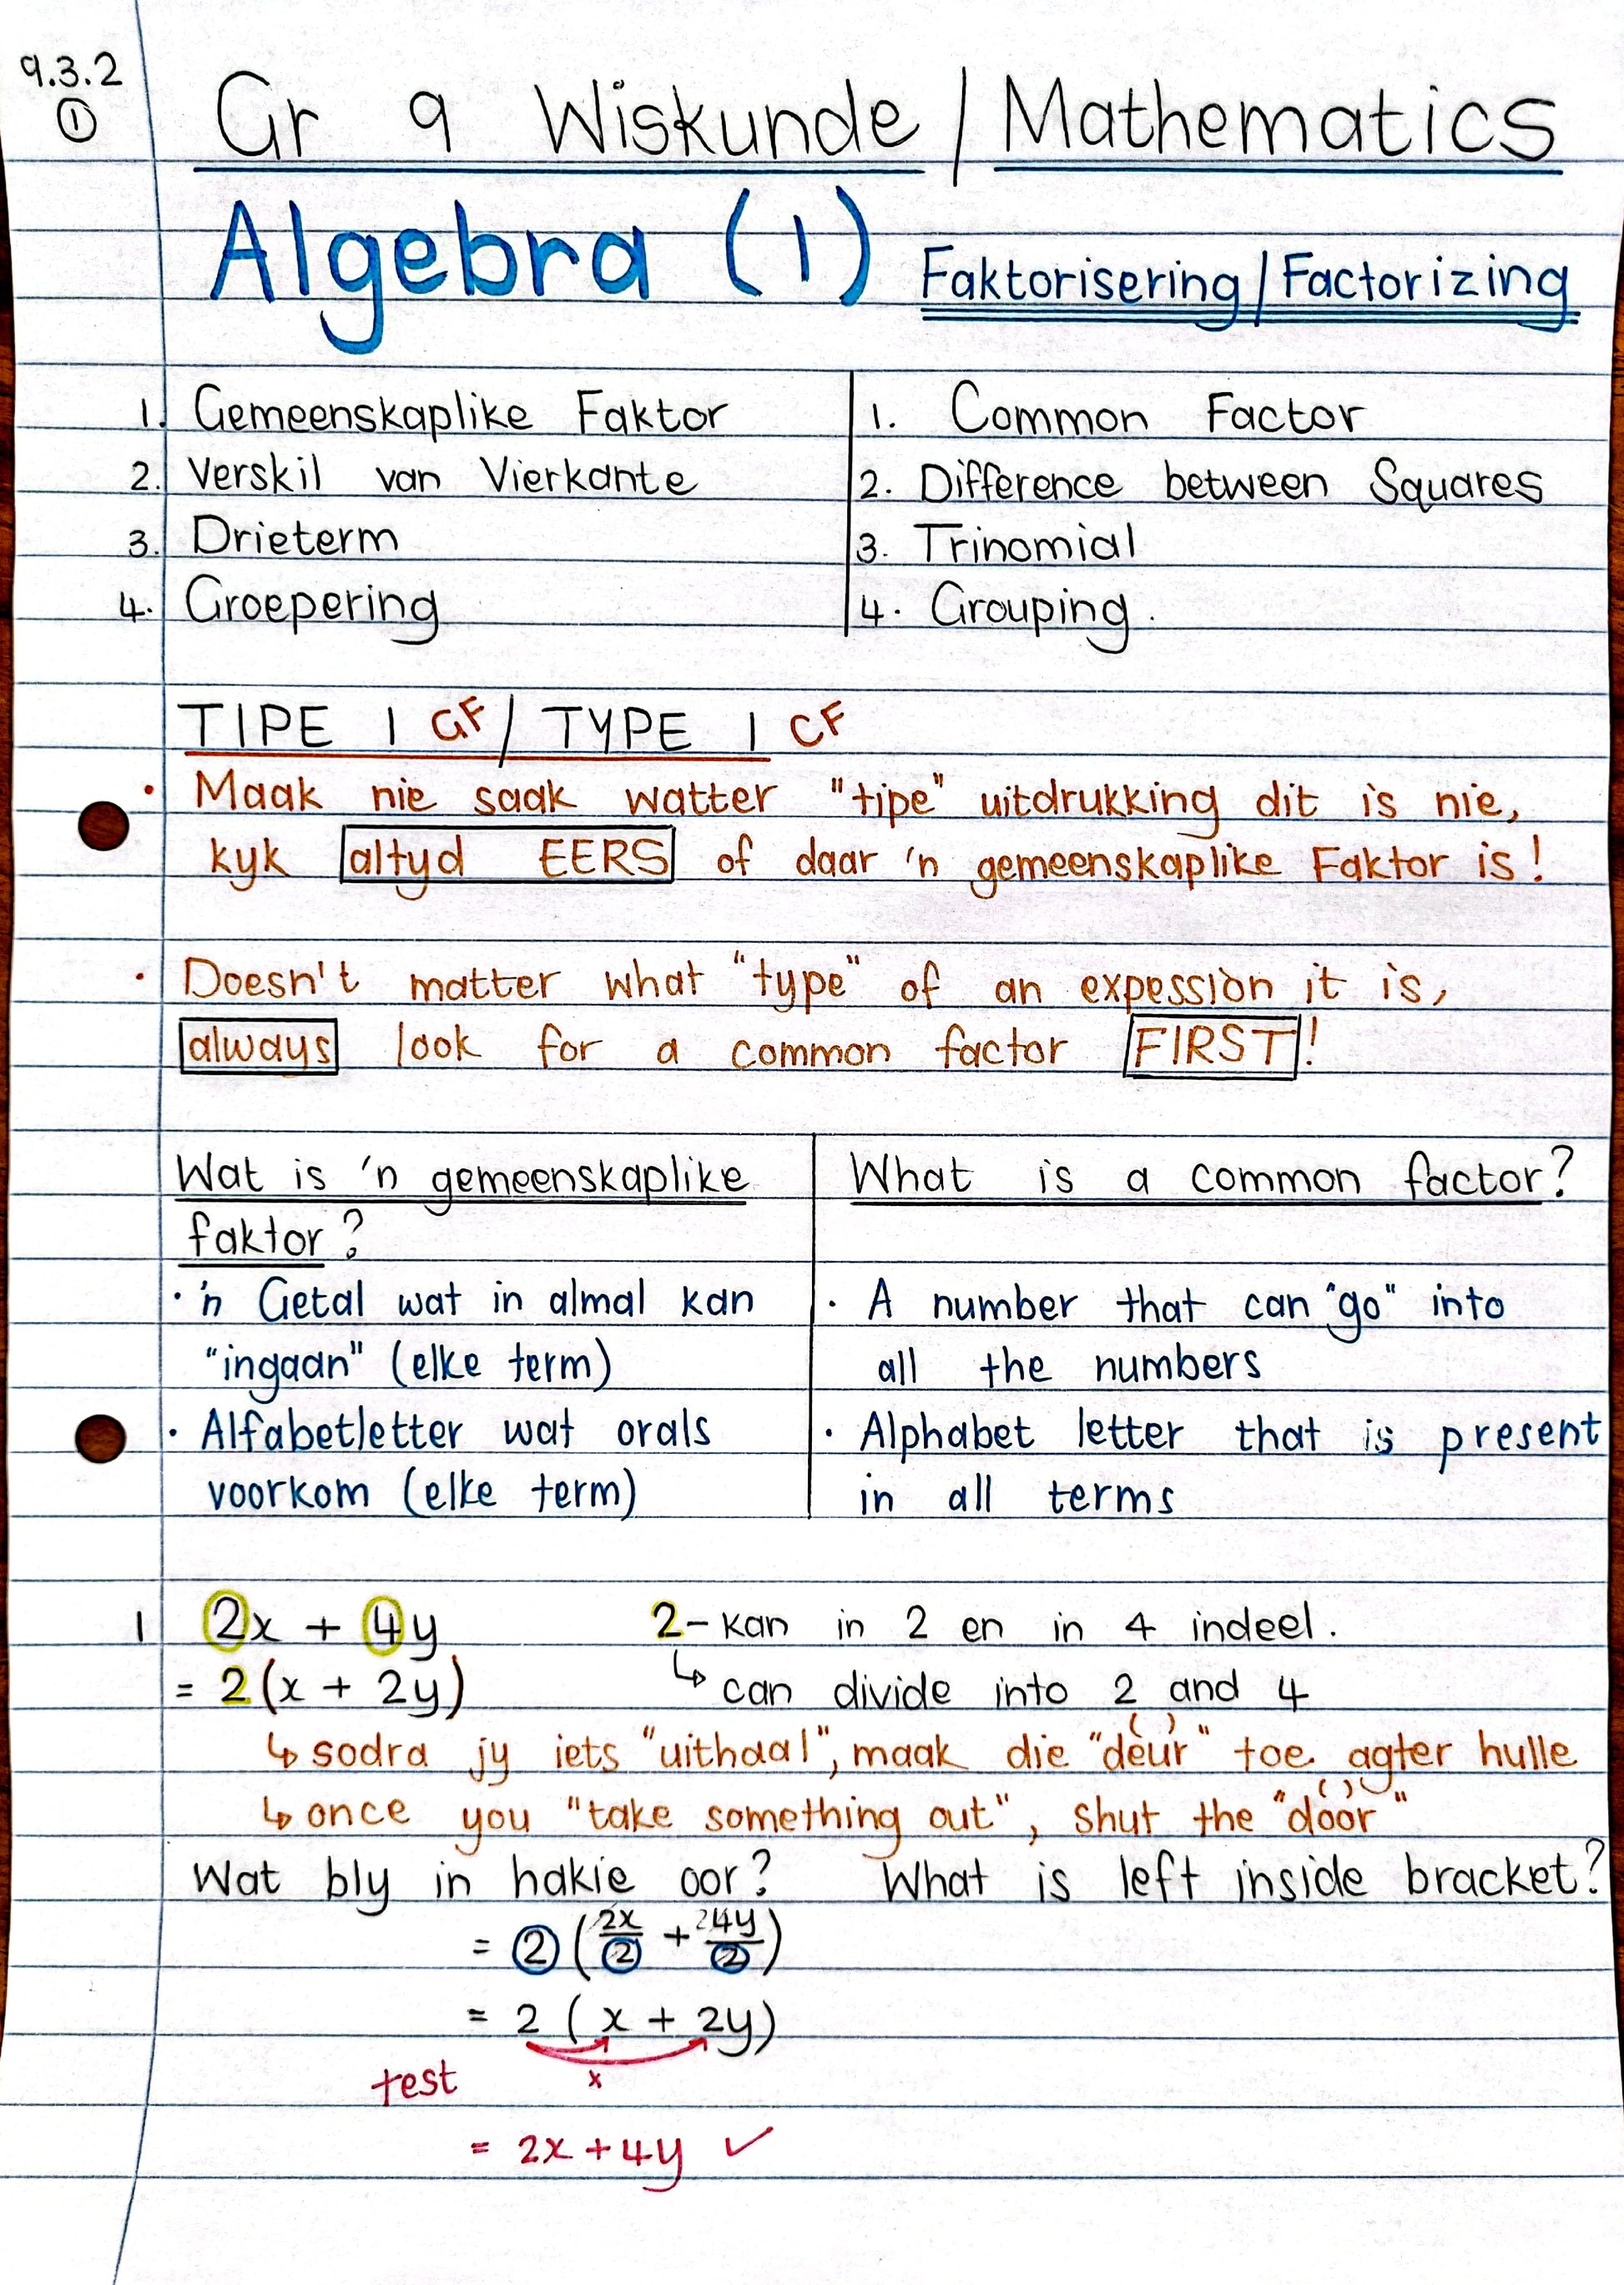 9.3.2
①
Gr 9 Wiskunde / Mathematics
Algebra (1) Faktorisering/Factorizing
1. Gemeenskaplike Faktor
2. Verskil van Vierkante
3. Drieterm
4. Groepering
1. Common Factor
2. Difference between Squares
3. Trinomial
4. Grouping.
TIPE 1 GF / TYPE 1 CF
• Maak nie saak watter "tipe" uitdrukking dit is nie,
kyk altyd EERS of daar 'n gemeenskaplike Faktor is!
• Doesn't matter what "type" of an expession it is,
always look for a common factor FIRST!
Wat is 'n gemeenskaplike
faktor?
• 'n Getal wat in almal kan
"ingaan" (elke term)
• Alfabetletter wat orals
voorkom (elke term)
What is a common factor?
• A number that can "go" into
all the numbers
• Alphabet letter that is present
in all terms
1 2x + 4y 2 - kan in 2 en in 4 indeel.
= 2(x + 2y) ↳ can divide into 2 and 4
↳ sodra jy iets "uithaal", maak die "deur" toe agter hulle
↳ once you "take something out", shut the "door"
Wat bly in hakie oor? What is left inside bracket?
= 2 (2x/2 + 4y/2)
= 2 (x + 2y)
test x
= 2x + 4y ✓